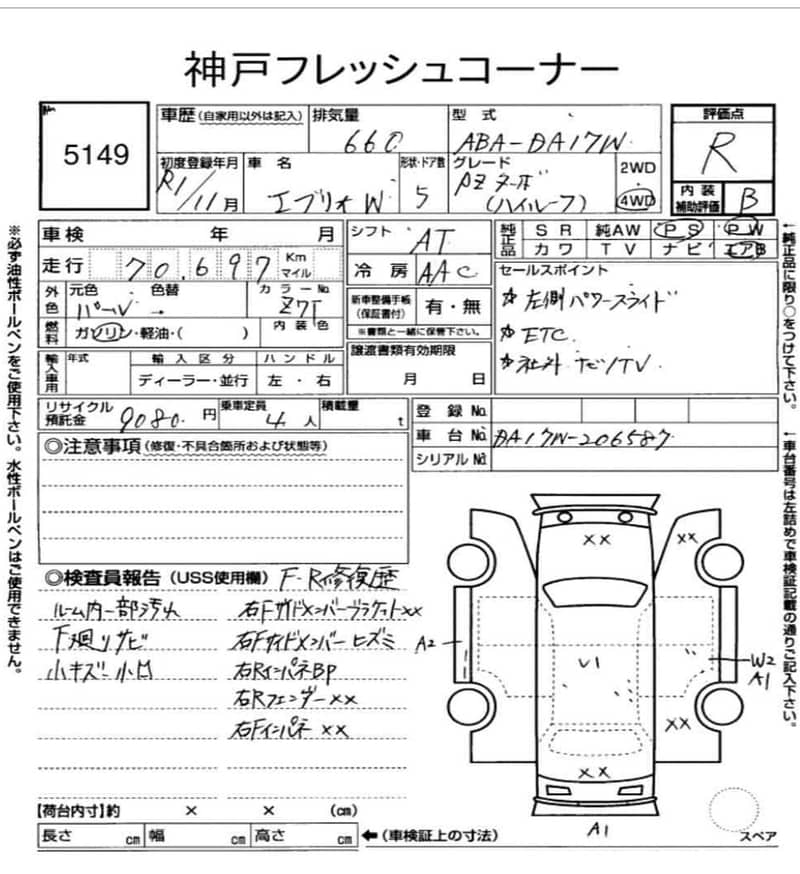 神戸フレッシュコーナー
5149
車歴(自家用以外は記入)
排気量
660
型 式
ABA-DA17W
評価点
R
初度登録年月
R1/11月
車 名
エブリイW
形状・ドア数
5
グレード
PZターボ
(ハイルーフ)
2WD
4WD
内 装
補助評価
B
車検 年 月
シフト
AT
純正品
S R 純AW P S P W
カ ワ T V ナ ビ エアB
走行 70,697 Km マイル
冷 房 AAC
セールスポイント
☆左側パワースライド
☆ETC.
☆社外ナビ/TV
外色
元色 色替
パール →
カラーNo.
Z7T
新車整備手帳
(保証書付)
有・無
※書類と一緒に保管下さい。
燃料
ガソリン・軽油・( )
内 装 色
輸入車用
年式
輸 入 区 分
ディーラー・並行
ハ ン ド ル
左 ・ 右
譲渡書類有効期限
月 日
リサイクル
預託金
9080 円
乗車定員
4 人
積載量
t
登 録 No.
車 台 No.
DA17W-206587
シリアル No.
◎注意事項(修復・不具合箇所および状態等)
◎検査員報告(USS使用欄) F・R修復歴
ルーム内一部汚れ
下廻りサビ
小キズ 小凹
右Fサイドメンバーブラケットxx
右Fサイドメンバー ヒズミ
右RインパネBP
右Rフェンダーxx
右Fインパネ xx
XX
XX
A2
U1
W2
A1
XX
XX
A1
スペア
【荷台内寸】約 × × (cm)
長さ cm 幅 cm 高さ cm
←(車検証上の寸法)
※必ず油性ボールペンをご使用下さい。水性ボールペンはご使用できません。
←純正品に限り○をつけて下さい。
←車台番号は左詰めで車検証記載の通りご記入下さい。